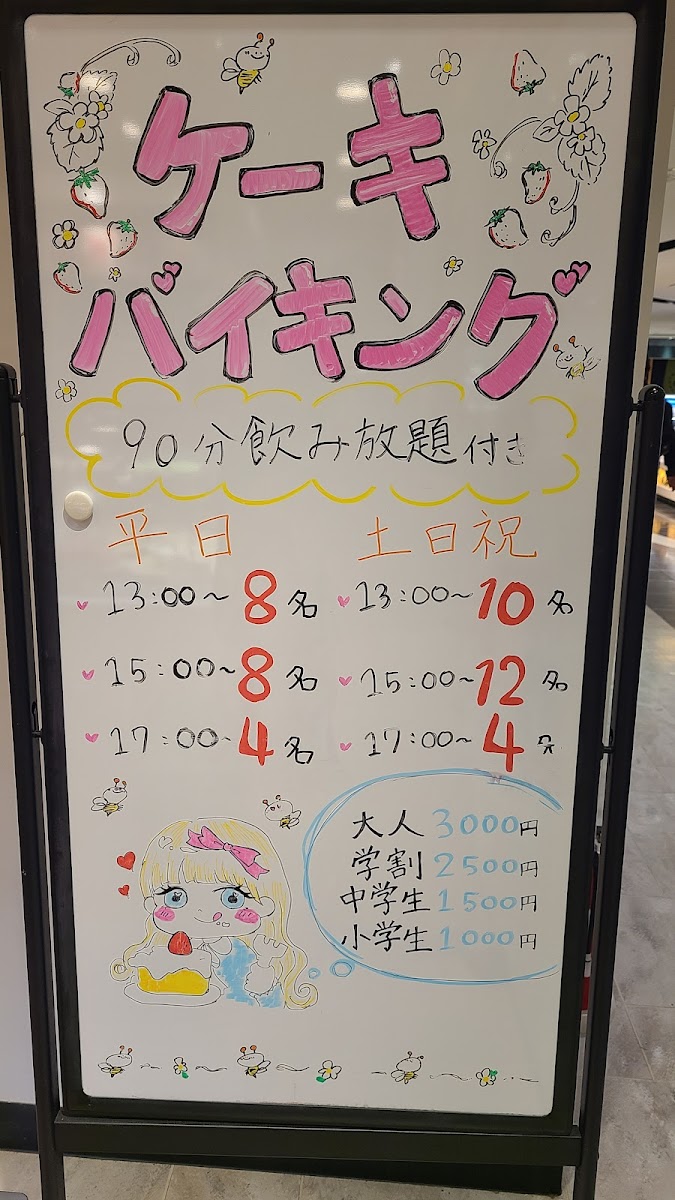 ケーキ
バイキング
90分飲み放題付き
平日 土日祝
13:00~8名 13:00~10名
15:00~8名 15:00~12名
17:00~4名 17:00~4名
大人 3000円
学割 2500円
中学生 1500円
小学生 1000円